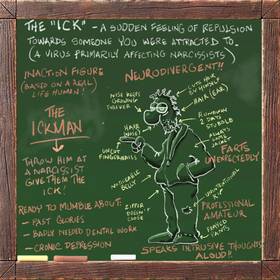 THE "ICK" - A SUDDEN FEELING OF REPULSION
TOWARDS SOMEONE YOU WERE ATTRACTED TO.
(A VIRUS PRIMARILY AFFECTING NARCISSISTS)
INACTION FIGURE
(BASED ON A REAL
LIFE HUMAN!)
THE
ICKMAN
THROW HIM AT
A NARCISSIST
GIVE THEM THE
ICK!
READY TO MUMBLE ABOUT:
- PAST GLORIES
- BADLY NEEDED DENTAL WORK
- CRONIC DEPRESSION
NEURODIVERGENT!!
NOSE KEEPS
GROWING
FOREVER
HAIR
NOSE
UNCUT
FINGERNAILS
NOTICEABLE
BELLY
ZIPPER
DOESN'T
CLOSE
CUTS HAIR
BY HIMSELF
HAIR (EAR)
RUNNING
2 DAYS
STUBBLE
ALWAYS
SAME
JACKET
FARTS
UNEXPECTEDLY
UNINTENTIONAL
PROFESSIONAL
AMATEUR
PANTS
SPEAKS INTRUSIVE THOUGHTS
ALOUD!!